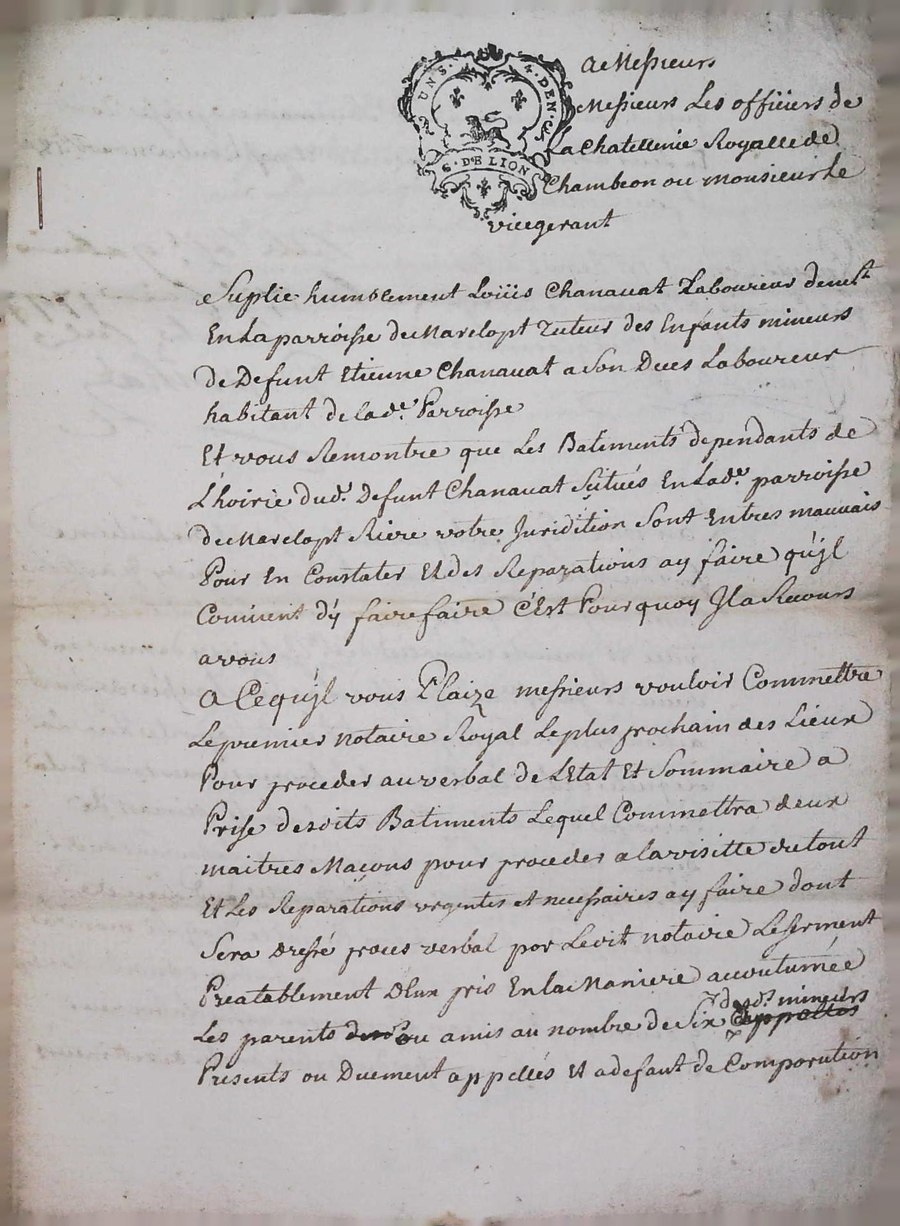 UNS. 4. DEN.
G. DE LION
A Messieurs
Messieurs Les officiers de
La Chatellenie Royalle de
Chambeon ou monsieur Le
vicegerant
Suplie humblement Loüis Chanavat Laboureur demt
En La parroisse de Marclopt Tuteur des Enfants mineurs
de Defunt Etienne Chanavat a Son Deces Laboureur
habitant de lade. Parroisse
Et vous Remontre que Les Batiments dependants de
L'hoirie dud. Defunt Chanavat Scitués En Lade. parroisse
de Marclopt Riere votre Juridition Sont En tres mauvais
Pour En Constater Et des Reparations a y faire qu'jl
Convient d'y faire faire C'Est Pourquoy Jl a Recours
a vous
A Ce qu'jl vous Plaize messieurs vouloir Commettre
Le premier notaire Royal Le plus prochain des Lieux
Pour proceder au verbal de L'Etat Et Sommaire a
Prise desdits Batiments Lequel Commettra deux
maitres Maçons pour proceder a la visitte du tout
Et Les Reparations urgentes et necessaires a y faire dont
Sera Dressé proces verbal par Ledit notaire Le serment
Prealablement D'Eux pris En la Maniere accoutumée
Les parents ou amis au nombre de Six desd. mineurs
Presents ou Duement appellés Et a defaut de Comparution